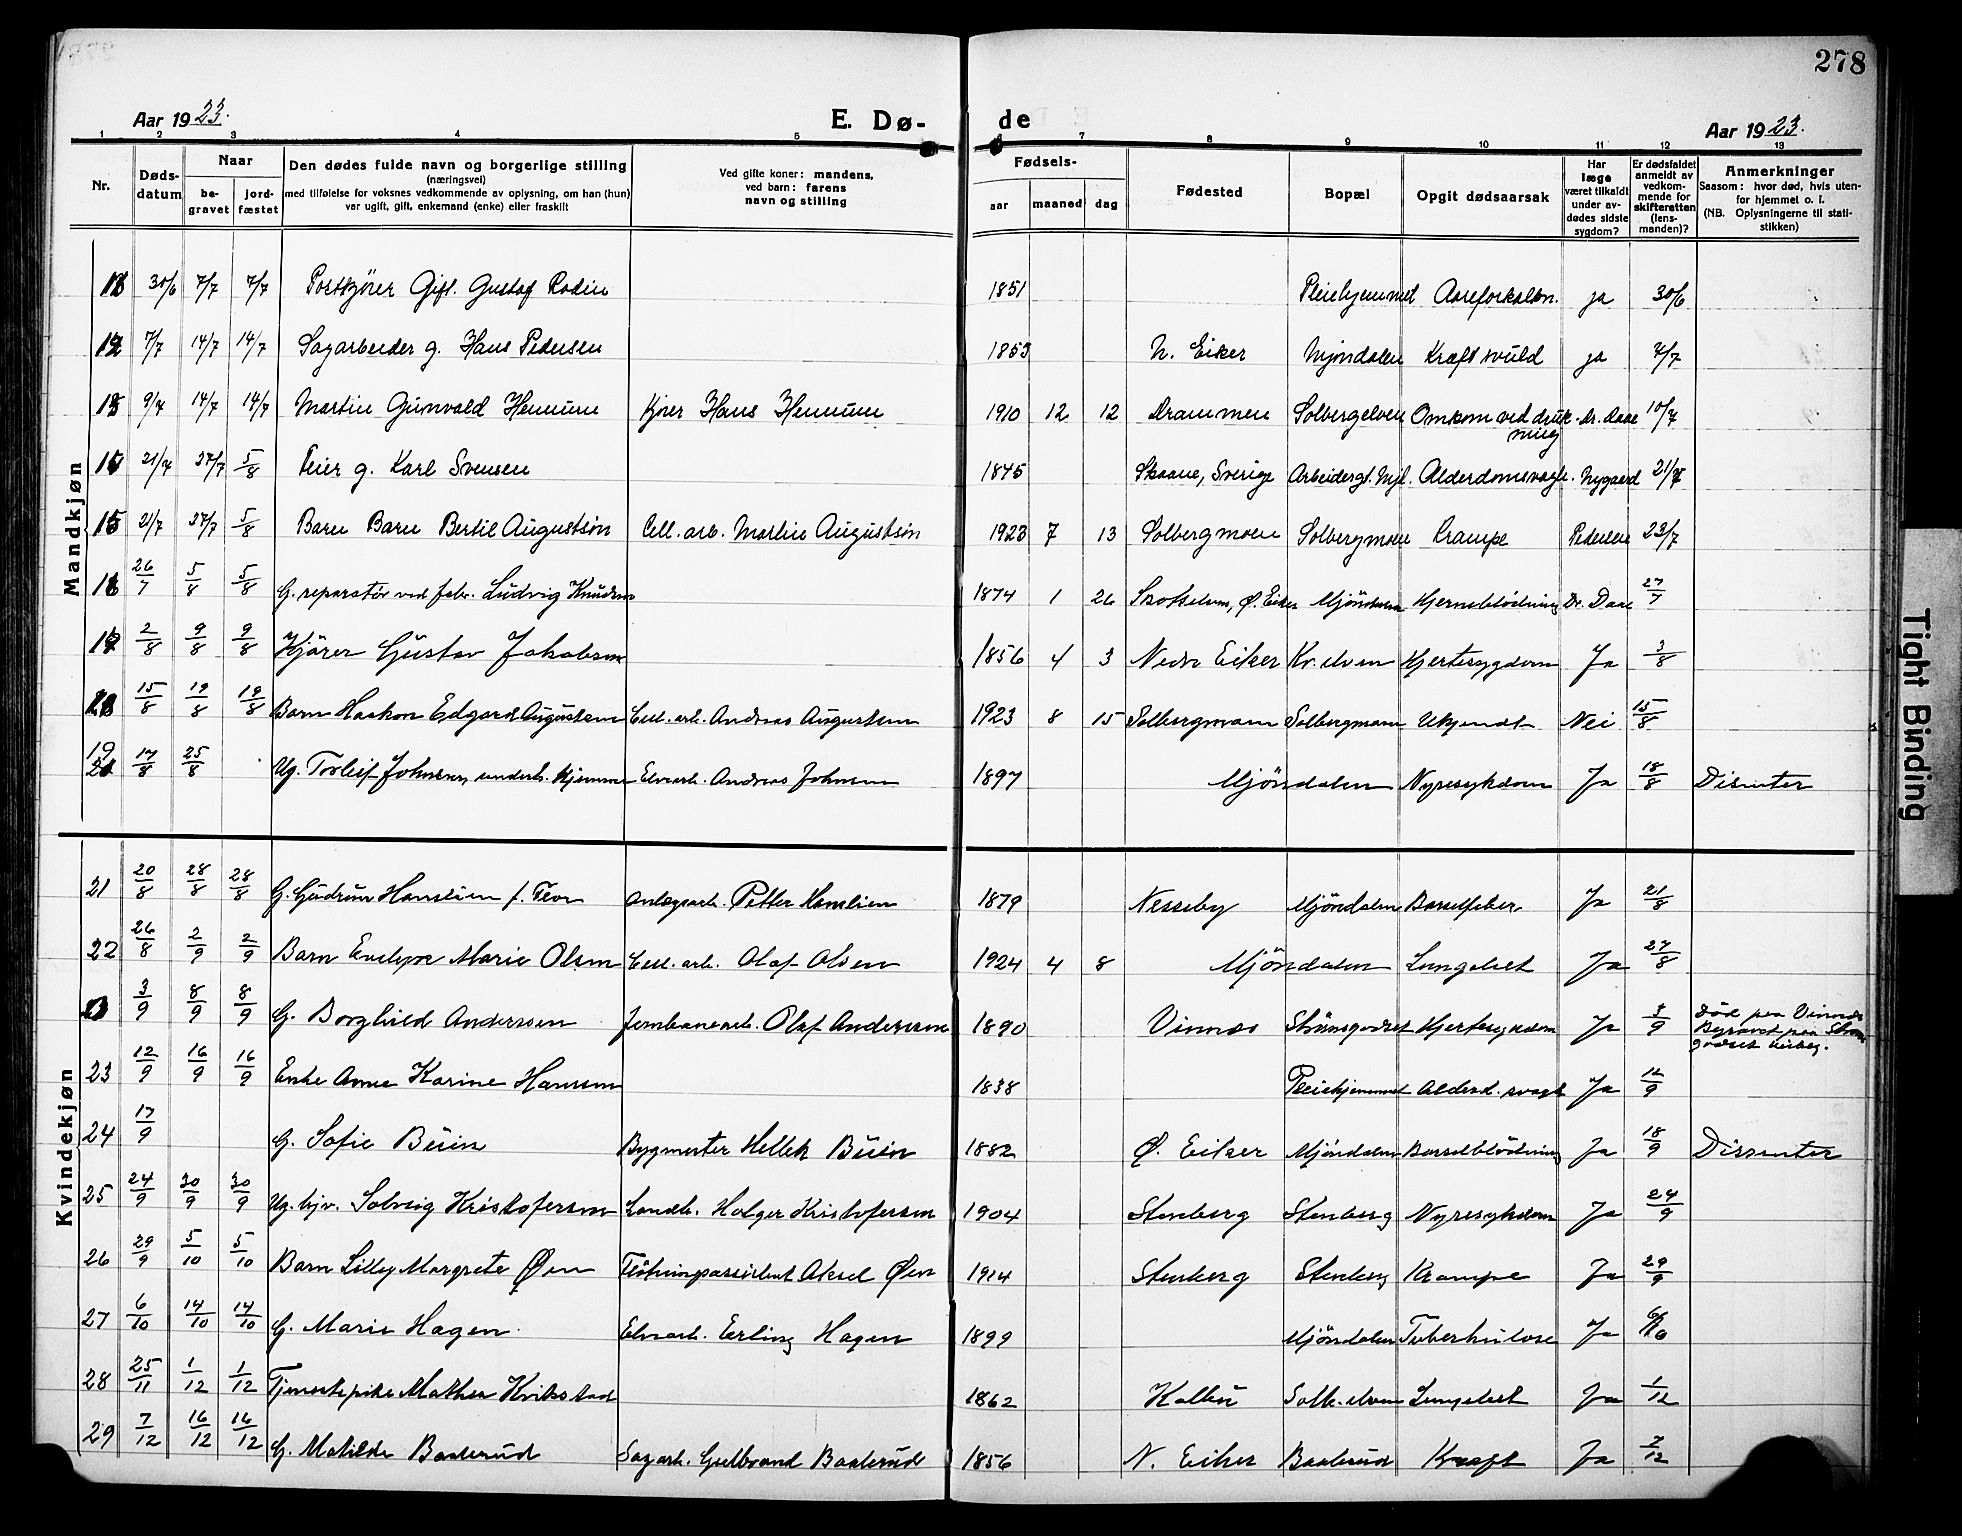 278
Aar 1923.
E. Dø-
de
Aar 1923.
1 2 3 4 5 6 7 8 9 10 11 12 13
Nr.
Døds-
datum
Naar
be-
gravet
jord-
fæstet
Den dødes fulde navn og borgerlige stilling
(næringsvei)
med tilføielse for voksnes vedkommende av oplysning, om han (hun)
var ugift, gift, enkemand (enke) eller fraskilt
Ved gifte koner: mandens,
ved barn: farens
navn og stilling
Fødsels-
aar maaned dag
Fødested
Bopæl
Opgit dødsaarsak
Har
læge
været tilkaldt
under av-
dødes sidste
sygdom?
Er dødsfaldet
anmeldt av
vedkom-
mende for
skifteretten
(lens-
manden)?
Anmerkninger
Saasom: hvor død, hvis uten-
for hjemmet o. l.
(NB. Oplysningerne til stati-
stikken)
Mandkjøn
30/6 7/7 7/7 Postkjörer Gift. Gustaf Rodin 1851 Pleiehjemmet Aareforkalkn. ja 30/6
12 7/7 14/7 14/7 Sagarbeider g. Hans Pedersen 1853 N. Eiker Mjøndalen Kræft svuld ja 7/7
13 9/7 14/7 14/7 Martin Gunvald Hennum Kjører Hans Hennum 1910 12 12 Drammen Solbergelven Omkom ved druk- Dr. Daae 10/7
ning
21/7 27/7 5/8 Feier g. Karl Svensen 1845 Skaane, Sverige Arbeidergt. Mjl. Alderdomsvagh. Nygaard 21/7
15 21/7 27/7 5/8 Barn Barn Bertil Augustson Cell. arb. Martin Augustson 1923 7 13 Solbergmoen Solbergmoen Krampe Pedersen 23/7
16 26/7 5/8 5/8 G. reparatör ved fabr. Ludvig Knudsen 1874 1 26 Skotselven, Ø. Eiker Mjöndalen Hjerneblödning Dr. Daae 27/7
17 2/8 9/8 9/8 Kjörer Gustav Jakobsen 1856 4 3 Nedre Eiker Kr. elven Hjertesygdom Ja 3/8
18 15/8 19/8 19/8 Barn Haakon Edgard Augustsen Cell. arb. Andreas Augustsen 1923 8 15 Solbergmoen Solbergmoen Ukjendt Nei 15/8
19 17/8 25/8 Ug. Torleif Johnsen, underh. hjemme Elvearb. Andreas Johnsen 1897 Mjöndalen Nyresykdom Ja 18/8 Disenter
Kvindekjøn
21 20/8 28/8 28/8 G. Gudrun Hanslien f. Anlegsarb. Petter Hanslien 1879 Nesseby Mjöndalen Barselfeber Ja 21/8
22 26/8 2/9 2/9 Barn Evelyne Marie Olsen Cell. arb. Olaf Olsen 1924 4 8 Mjöndalen Lungebet Ja 27/8
3/9 8/9 8/9 G. Borghild Anderssen Jernbanearb. Olaf Anderssen 1890 Vinnes Strömsgodset Hjertesykdom Ja 3/9 Död paa Vinnes
Begravet paa Ströms
godset kirkeg.
23 12/9 16/9 16/9 Enke Anne Karine Hansen 1838 Pleiehjemmet Alderd. svagh Ja 12/9
24 17/9 G. Sofie Buin Bygmester Hellek Buin 1882 Ø. Eiker Mjöndalen Barselblödning Ja 18/9 Dissenter
25 24/9 30/9 30/9 Ug. hjv. Solveig Kristofersen Landh. Holger Kristofersen 1904 Stenberg Stenberg Nyresykdom Ja 24/9
26 29/9 5/10 5/10 Barn Lilly Margrete Øen Flötningsassistent Aksel Øen 1914 Stenberg Stenberg Krampe Ja 29/9
27 6/10 14/10 14/10 G. Marie Hagen Elvearb. Erling Hagen 1899 Mjöndalen Tuberkulose Ja 6/10
28 25/11 1/12 1/12 Tjenestepike Mathea Kvikstad 1862 Kolbu Solb. elven Lungebet Ja 1/12
29 7/12 16/12 16/12 G. Matilde Baalerud Sagarb. Gulbrand Baalerud 1856 N. Eiker Baalerud Kræft Ja 7/12
Tight Binding